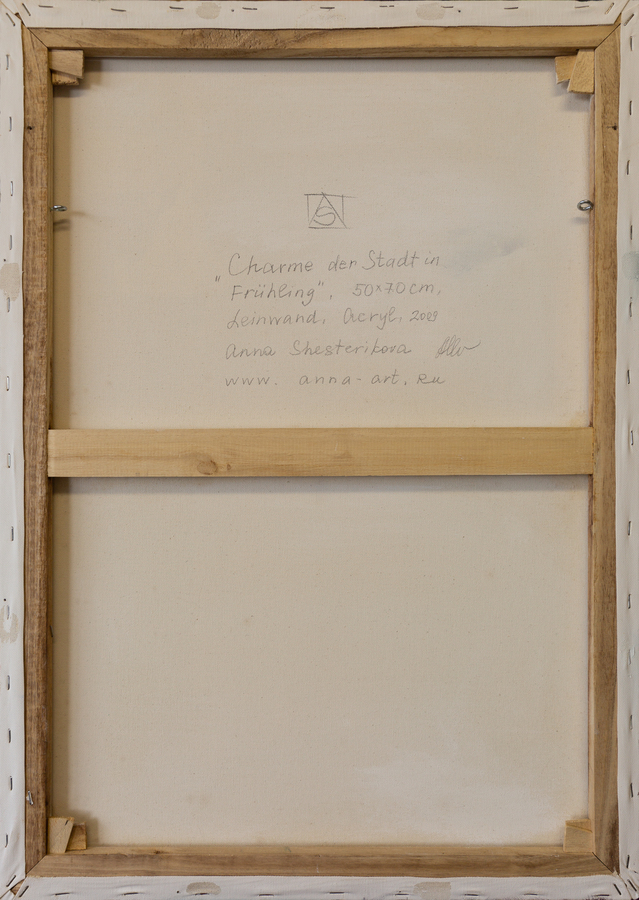 AS
„Charme der Stadt in
Frühling", 50×70cm,
Leinwand, Acryl, 2009
Anna Shesterikova
www. anna-art.ru